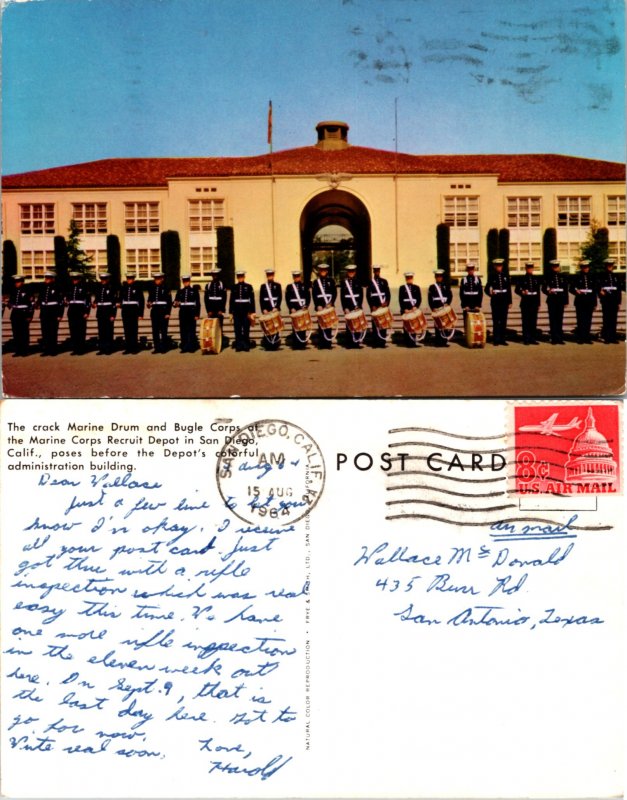 The crack Marine Drum and Bugle Corps of
the Marine Corps Recruit Depot in San Diego,
Calif., poses before the Depot's colorful
administration building.
Dear Wallace
Just a few line to let you
know I'm okay. I receive
all your post card. Just
got thru with a rifle
inspection which was real
easy this time. We have
one more rifle inspection
in the eleven week out
here. On Sept. 9, that is
the last day here. Got to
go for now.
Write real soon.
Love,
Harold
NATURAL COLOR REPRODUCTION • FRYE & SMITH, LTD., SAN DIEGO, CALIFORNIA
SAN DIEGO, CALIF.
AM
15 AUG
1964
POST CARD
8c
U.S. AIR MAIL
air mail
Wallace McDonald
435 Burr Rd.
San Antonio, Texas